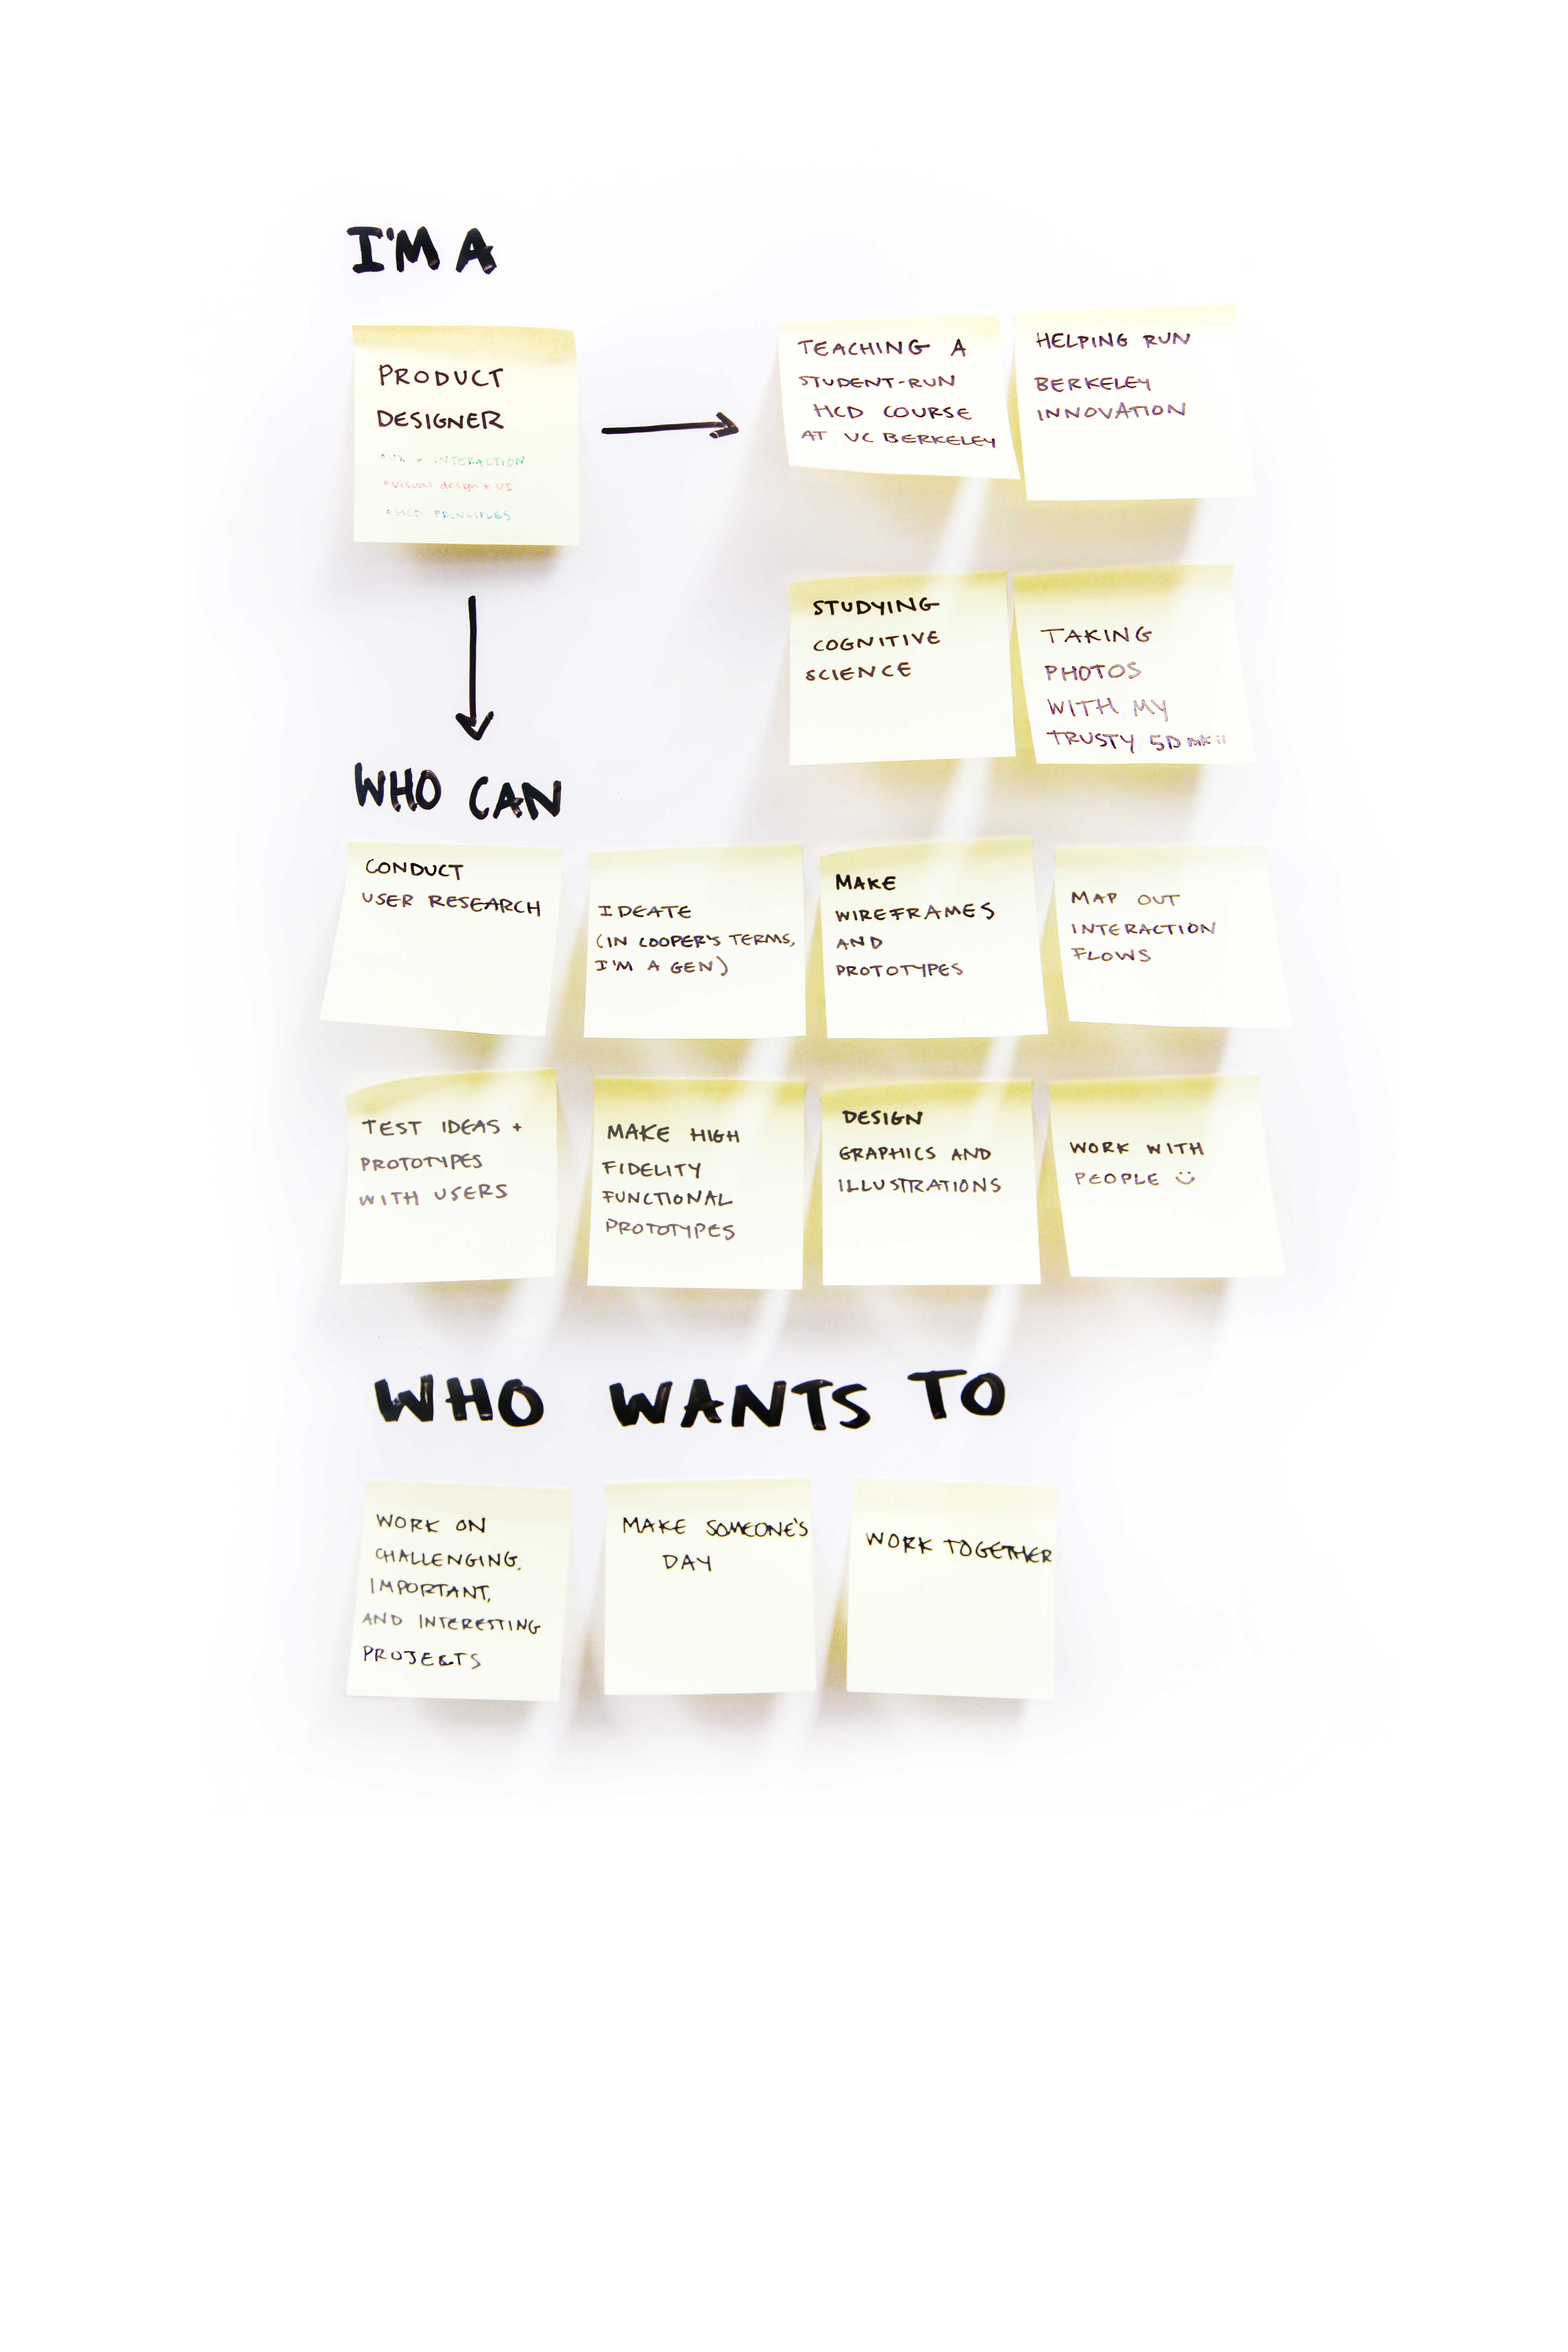 I'M A
PRODUCT
DESIGNER
• UX + INTERACTION
• visual design + UI
• HCD PRINCIPLES
TEACHING A
STUDENT-RUN
HCD COURSE
AT UC BERKELEY
HELPING RUN
BERKELEY
INNOVATION
STUDYING
COGNITIVE
SCIENCE
TAKING
PHOTOS
WITH MY
TRUSTY 5D MK ii
WHO CAN
CONDUCT
USER RESEARCH
IDEATE
(IN COOPER'S TERMS,
I'M A GEN)
MAKE
WIREFRAMES
AND
PROTOTYPES
MAP OUT
INTERACTION
FLOWS
TEST IDEAS +
PROTOTYPES
WITH USERS
MAKE HIGH
FIDELITY
FUNCTIONAL
PROTOTYPES
DESIGN
GRAPHICS AND
ILLUSTRATIONS
WORK WITH
PEOPLE
WHO WANTS TO
WORK ON
CHALLENGING,
IMPORTANT,
AND INTERESTING
PROJECTS
MAKE SOMEONE'S
DAY
WORK TOGETHER